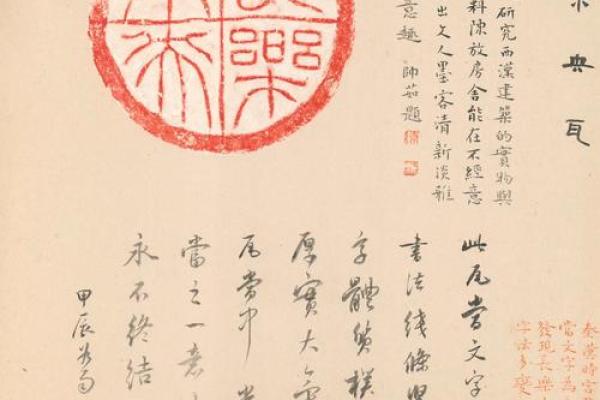 典瓦
研究西漢建築的實物與
料陳放房舍能在不經意
出文人墨客清新淡雅
意趣 師茹題
樂
此瓦當文字
書法线條
字體質樸
厚實大
瓦當中
當之一意
永不終結
甲辰
秦漢時宮
當文字為
發現長樂
字法多變